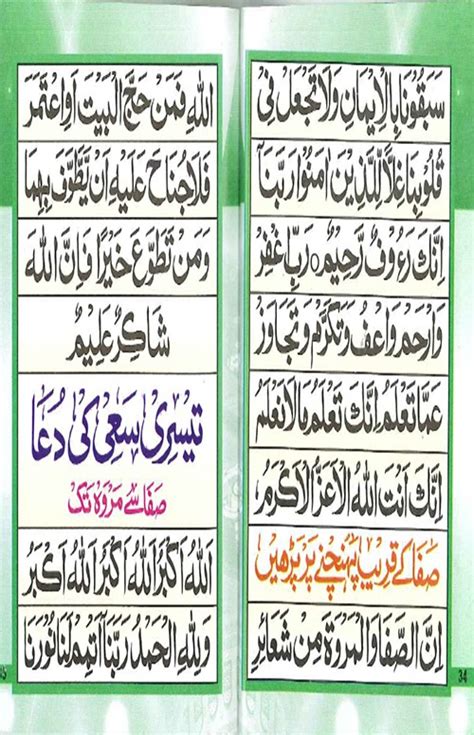 سَبَقُوْنَا بِالْاِيْمَانِ وَلَا تَجْعَلْ فِیْ
قُلُوْبِنَا غِلًّا لِّلَّذِيْنَ اٰمَنُوْا رَبَّنَآ
اِنَّكَ رَءُوْفٌ رَّحِيْمٌ ○ رَبِّ اغْفِرْ
وَارْحَمْ وَاعْفُ وَتَكَرَّمْ وَتَجَاوَزْ
عَمَّا تَعْلَمُ اِنَّكَ تَعْلَمُ مَا لَا نَعْلَمُ
اِنَّكَ اَنْتَ اللهُ الْاَعَزُّ الْاَكْرَمُ
صَفَا کے قریب پہنچنے پر پڑھیں
اِنَّ الصَّفَا وَالْمَرْوَةَ مِنْ شَعَآئِرِ
34
اللهِ فَمَنْ حَجَّ الْبَيْتَ اَوِ اعْتَمَرَ
فَلَا جُنَاحَ عَلَيْهِ اَنْ يَّطَّوَّفَ بِهِمَا
وَمَنْ تَطَوَّعَ خَيْرًا فَاِنَّ اللهَ
شَاكِرٌ عَلِيْمٌ
تیسری سعی کی دُعا
صفا سے مروہ تک
اَللهُ اَكْبَرُ اَللهُ اَكْبَرُ اَللهُ اَكْبَرُ
وَلِلّٰهِ الْحَمْدُ رَبَّنَا اَتْمِمْ لَنَا نُوْرَنَا